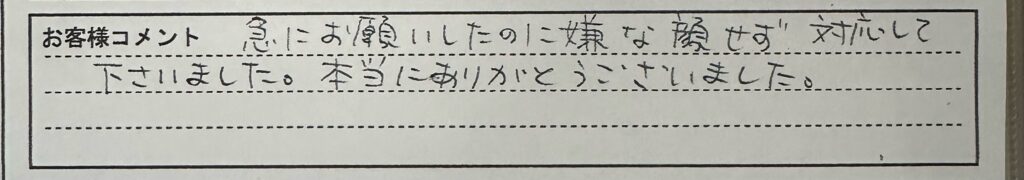 お客様コメント 急にお願いしたのに嫌な顔せず 対応して
下さいました。本当にありがとうございました。